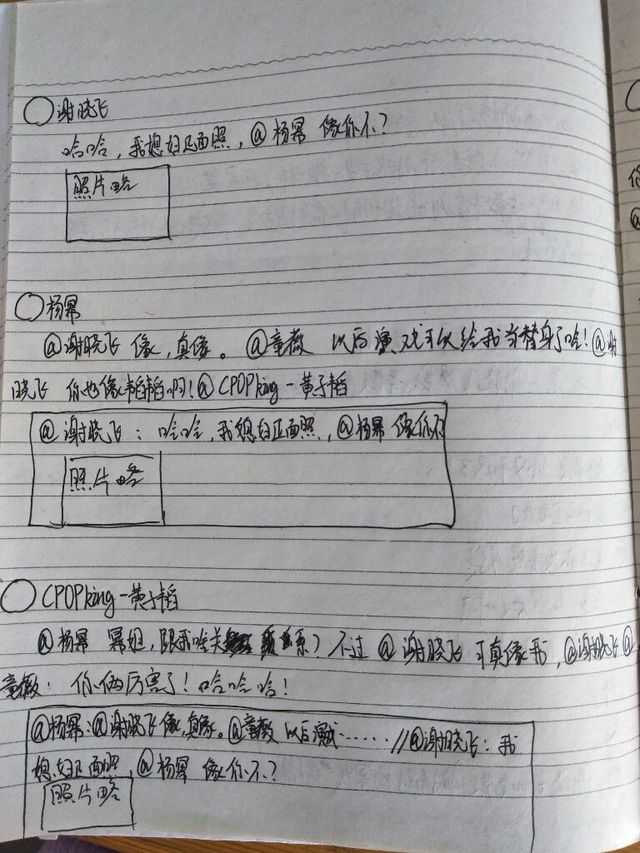 谢晓飞
哈哈，我媳妇正面照，@杨幂 像你不？
照片略
杨幂
@谢晓飞 像，真像。@童薇 以后演戏可以给我当替身了哈！@谢
晓飞 你也像韬韬啊！@CPOPking-黄子韬
@谢晓飞：哈哈，我媳妇正面照，@杨幂 像你不
照片略
CPOPking-黄子韬
@杨幂 幂姐，跟我啥关系？不过 @谢晓飞 可真像我，@谢晓飞 @
童薇：你俩厉害了！哈哈哈！
@杨幂：@谢晓飞 像，真像。@童薇 以后演戏……//@谢晓飞：我
媳妇正面照，@杨幂 像你不？
照片略